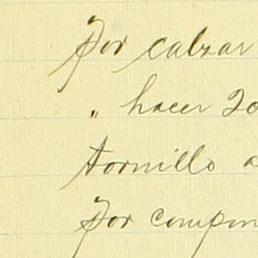 Por calzar
" hacer 20
tornillo a
Por compon